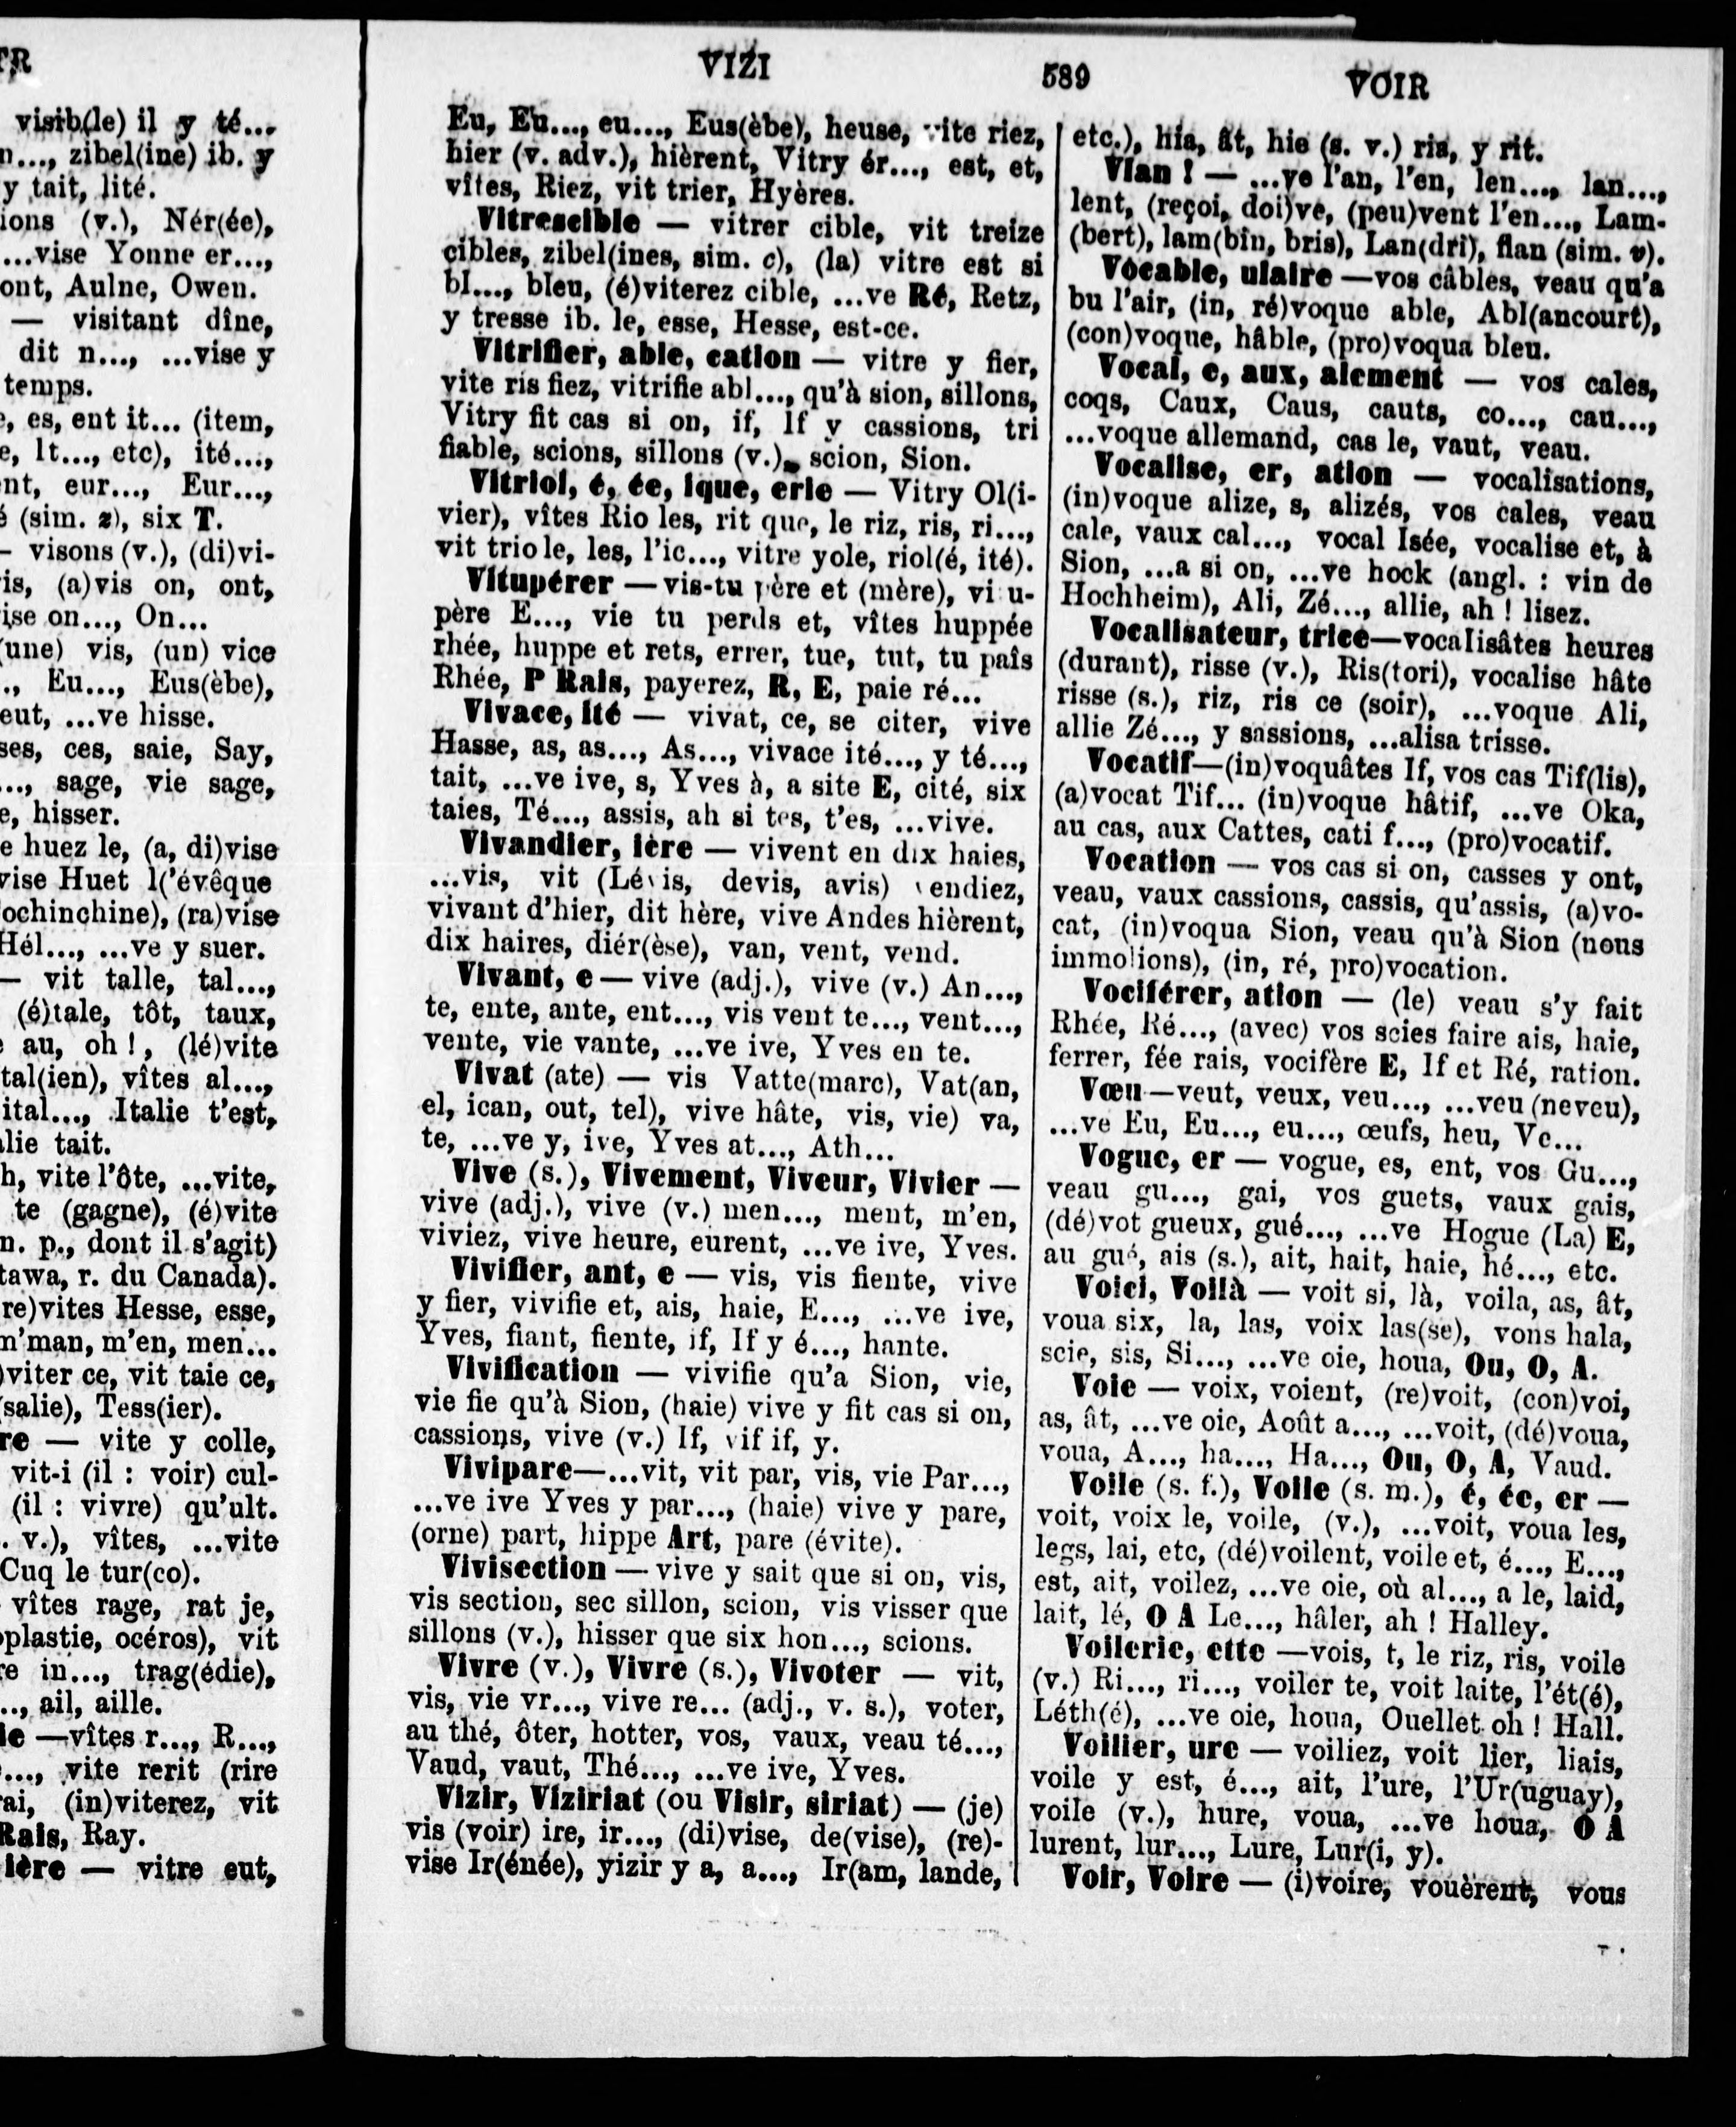 TR
visib(le) il y té...
n..., zibel(ine) ib. y
y tait, lité.
ions (v.), Nér(ée),
...vise Yonne er...,
ont, Aulne, Owen.
— visitant dîne,
dit n..., ...vise y
temps.
e, es, ent it... (item,
e, It..., etc), ité...,
nt, eur..., Eur...,
é (sim. z), six T.
— visons (v.), (di)vi-
is, (a)vis on, ont,
ise on..., On...
(une) vis, (un) vice
., Eu..., Eus(èbe),
eut, ...ve hisse.
ses, ces, saie, Say,
..., sage, vie sage,
e, hisser.
e huez le, (a, di)vise
vise Huet l('évêque
ochinchine), (ra)vise
Hél..., ...ve y suer.
— vit talle, tal...,
(é)tale, tôt, taux,
au, oh!, (lé)vite
tal(ien), vîtes al...,
ital..., Italie t'est,
alie tait.
h, vite l'ôte, ...vite,
te (gagne), (é)vite
n. p., dont il s'agit)
tawa, r. du Canada).
re)vites Hesse, esse,
m'man, m'en, men...
)viter ce, vit taie ce,
(salie), Tess(ier).
re — vite y colle,
vit-i (il : voir) cul-
(il : vivre) qu'ult.
. v.), vîtes, ...vite
Cuq le tur(co).
vîtes rage, rat je,
oplastie, océros), vit
re in..., trag(édie),
.., ail, aille.
ie —vîtes r..., R...,
..., vite rerit (rire
rai, (in)viterez, vit
Rais, Ray.
ière — vitre eut,
VIZI
589
VOIR
Eu, Eu..., eu..., Eus(èbe), heuse, vite riez,
hier (v. adv.), hièrent, Vitry ér..., est, et,
vîtes, Riez, vit trier, Hyères.
Vitrescible — vitrer cible, vit treize
cibles, zibel(ines, sim. c), (la) vitre est si
bl..., bleu, (é)viterez cible, ...ve Ré, Retz,
y tresse ib. le, esse, Hesse, est-ce.
Vitrifier, able, cation — vitre y fier,
vite ris fiez, vitrifie abl..., qu'à sion, sillons,
Vitry fit cas si on, if, If y cassions, tri
fiable, scions, sillons (v.), scion, Sion.
Vitriol, é, ée, ique, erie — Vitry Ol(i-
vier), vîtes Rio les, rit que, le riz, ris, ri...,
vit triole, les, l'ic..., vitre yole, riol(é, ité).
Vitupérer — vis-tu père et (mère), vi u-
père E..., vie tu perds et, vîtes huppée
rhée, huppe et rets, errer, tue, tut, tu paîs
Rhée, P Rais, payerez, R, E, paie ré...
Vivace, ité — vivat, ce, se citer, vive
Hasse, as, as..., As..., vivace ité..., y té...,
tait, ...ve ive, s, Yves à, a site E, cité, six
taies, Té..., assis, ah si tes, t'es, ...vive.
Vivandier, ière — vivent en dix haies,
...vis, vit (Lévis, devis, avis) vendiez,
vivant d'hier, dit hère, vive Andes hièrent,
dix haires, diér(èse), van, vent, vend.
Vivant, e — vive (adj.), vive (v.) An...,
te, ente, ante, ent..., vis vent te..., vent...,
vente, vie vante, ...ve ive, Yves en te.
Vivat (ate) — vis Vatte(marc), Vat(an,
el, ican, out, tel), vive hâte, vis, vie) va,
te, ...ve y, ive, Yves at..., Ath...
Vive (s.), Vivement, Viveur, Vivier —
vive (adj.), vive (v.) men..., ment, m'en,
viviez, vive heure, eurent, ...ve ive, Yves.
Vivifier, ant, e — vis, vis fiente, vive
y fier, vivifie et, ais, haie, E..., ...ve ive,
Yves, fiant, fiente, if, If y é..., hante.
Vivification — vivifie qu'a Sion, vie,
vie fie qu'à Sion, (haie) vive y fit cas si on,
cassions, vive (v.) If, vif if, y.
Vivipare—...vit, vit par, vis, vie Par...,
...ve ive Yves y par..., (haie) vive y pare,
(orne) part, hippe Art, pare (évite).
Vivisection — vive y sait que si on, vis,
vis section, sec sillon, scion, vis visser que
sillons (v.), hisser que six hon..., scions.
Vivre (v.), Vivre (s.), Vivoter — vit,
vis, vie vr..., vive re... (adj., v. s.), voter,
au thé, ôter, hotter, vos, vaux, veau té...,
Vaud, vaut, Thé..., ...ve ive, Yves.
Vizir, Viziriat (ou Visir, siriat) — (je)
vis (voir) ire, ir..., (di)vise, de(vise), (re)-
vise Ir(énée), yizir y a, a..., Ir(am, lande,
etc.), hia, ât, hie (s. v.) ria, y rit.
Vlan ! — ...ve l'an, l'en, len..., lan...,
lent, (reçoi, doi)ve, (peu)vent l'en..., Lam-
(bert), lam(bin, bris), Lan(dri), flan (sim. v).
Vocable, ulaire —vos câbles, veau qu'a
bu l'air, (in, ré)voque able, Abl(ancourt),
(con)voque, hâble, (pro)voqua bleu.
Vocal, e, aux, alement — vos cales,
coqs, Caux, Caus, cauts, co..., cau...,
...voque allemand, cas le, vaut, veau.
Vocalise, er, ation — vocalisations,
(in)voque alize, s, alizés, vos cales, veau
cale, vaux cal..., vocal Isée, vocalise et, à
Sion, ...a si on, ...ve hock (angl. : vin de
Hochheim), Ali, Zé..., allie, ah ! lisez.
Vocalisateur, trice—vocalisâtes heures
(durant), risse (v.), Ris(tori), vocalise hâte
risse (s.), riz, ris ce (soir), ...voque Ali,
allie Zé..., y sassions, ...alisa trisse.
Vocatif—(in)voquâtes If, vos cas Tif(lis),
(a)vocat Tif... (in)voque hâtif, ...ve Oka,
au cas, aux Cattes, cati f..., (pro)vocatif.
Vocation — vos cas si on, casses y ont,
veau, vaux cassions, cassis, qu'assis, (a)vo-
cat, (in)voqua Sion, veau qu'à Sion (nous
immolions), (in, ré, pro)vocation.
Vociférer, ation — (le) veau s'y fait
Rhée, Ré..., (avec) vos scies faire ais, haie,
ferrer, fée rais, vocifère E, If et Ré, ration.
Vœu—veut, veux, veu..., ...veu (neveu),
...ve Eu, Eu..., eu..., œufs, heu, Ve...
Vogue, er — vogue, es, ent, vos Gu...,
veau gu..., gai, vos guets, vaux gais,
(dé)vot gueux, gué..., ...ve Hogue (La) E,
au gué, ais (s.), ait, hait, haie, hé..., etc.
Voici, Voilà — voit si, là, voila, as, ât,
voua six, la, las, voix las(se), vous hala,
scie, sis, Si..., ...ve oie, houa, Ou, O, A.
Voie — voix, voient, (re)voit, (con)voi,
as, ât, ...ve oie, Août a..., ...voit, (dé)voua,
voua, A..., ha..., Ha..., Ou, O, A, Vaud.
Voile (s. f.), Voile (s. m.), é, ée, er —
voit, voix le, voile, (v.), ...voit, voua les,
legs, lai, etc, (dé)voilent, voile et, é..., E...,
est, ait, voilez, ...ve oie, où al..., a le, laid,
lait, lé, O A Le..., hâler, ah ! Halley.
Voilerie, ette —vois, t, le riz, ris, voile
(v.) Ri..., ri..., voiler te, voit laite, l'ét(é),
Léth(é), ...ve oie, houa, Ouellet oh ! Hall.
Voilier, ure — voiliez, voit lier, liais,
voile y est, é..., ait, l'ure, l'Ur(uguay),
voile (v.), hure, voua, ...ve houa, O A
lurent, lur..., Lure, Lur(i, y).
Voir, Voire — (i)voire, vouèrent, vous